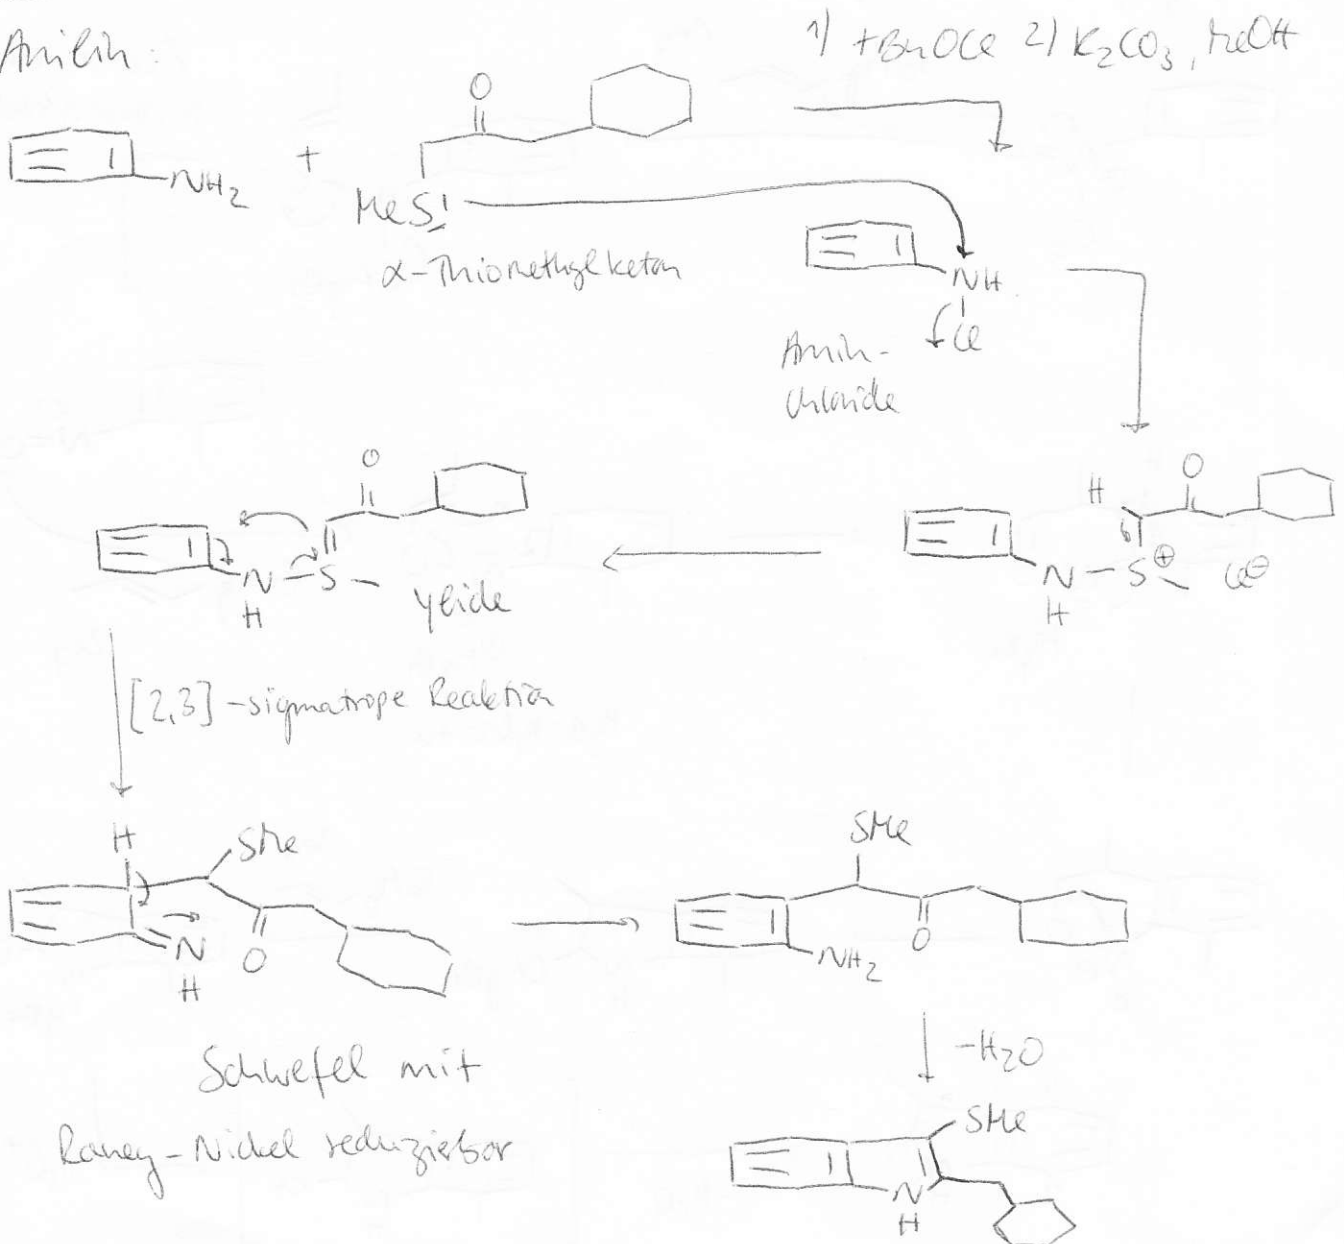 Anilin:
1) tBuOCl 2) K₂CO₃, MeOH
O
NH₂
+
MeS
α-Thiomethylketon
NH
Cl
Amin-
chloride
O
N – S –
H
Ylide
H
O
N – S ⊕
H
Cl⊖
[2,3]-sigmatrope Reaktion
H
SMe
N
H
O
SMe
NH₂
O
Schwefel mit
Raney-Nickel reduzierbar
-H₂O
SMe
N
H